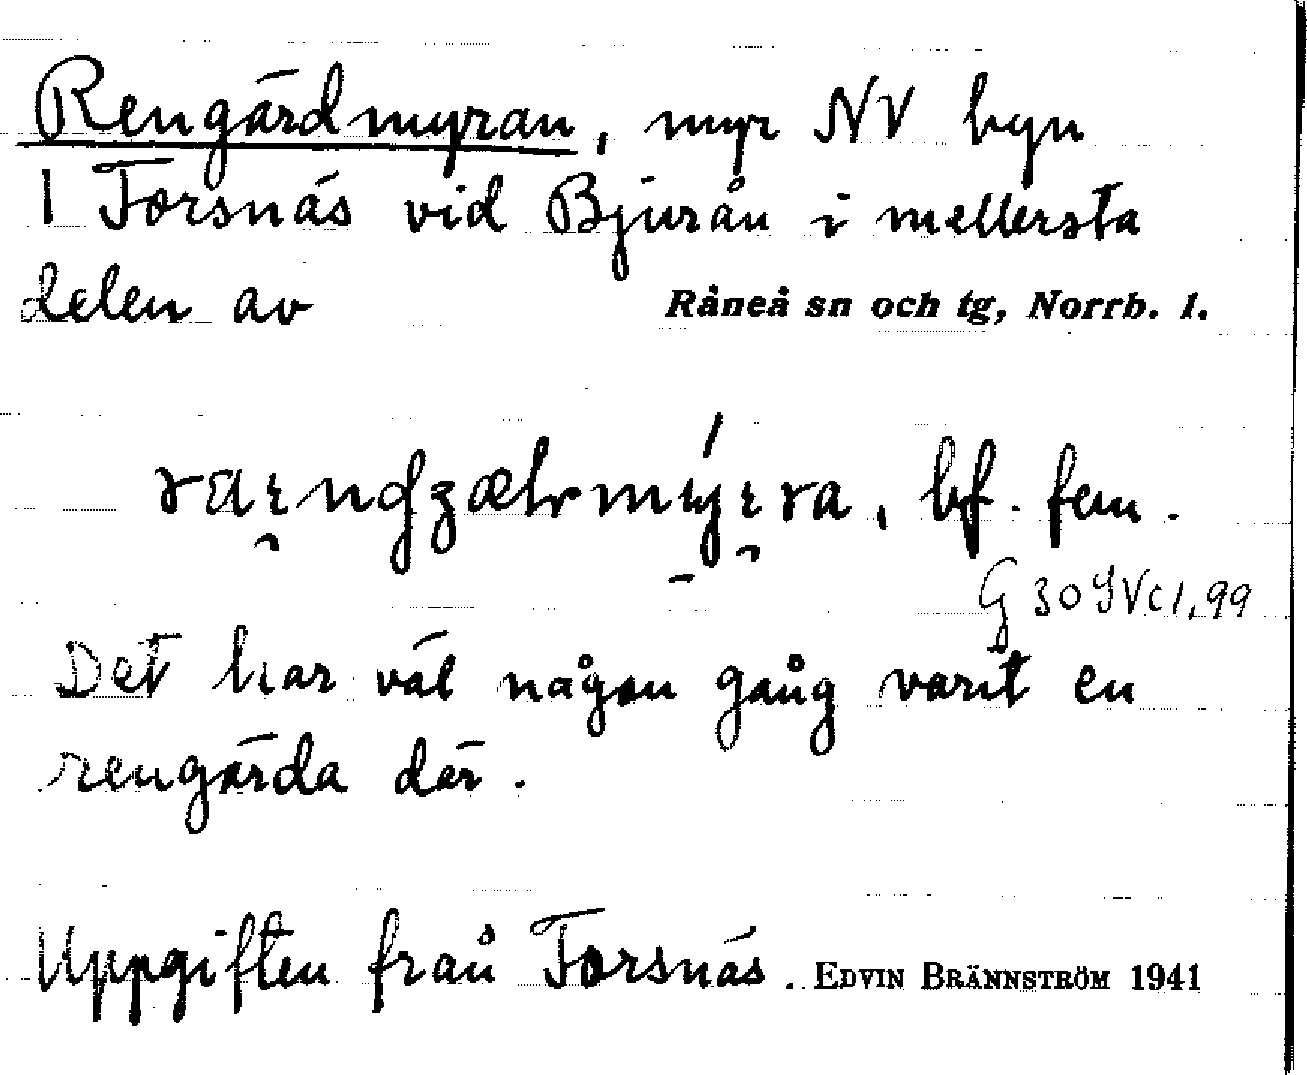 Rengärdmyran, myr NV byn
1 Forsnäs vid Bjurån i mellersta
delen av Råneå sn och tg, Norrb. l.
bf. fem.
G 30
Det har väl någon gång varit en
rengärda där.
Uppgiften från Forsnäs. EDVIN BRÄNNSTRÖM 1941